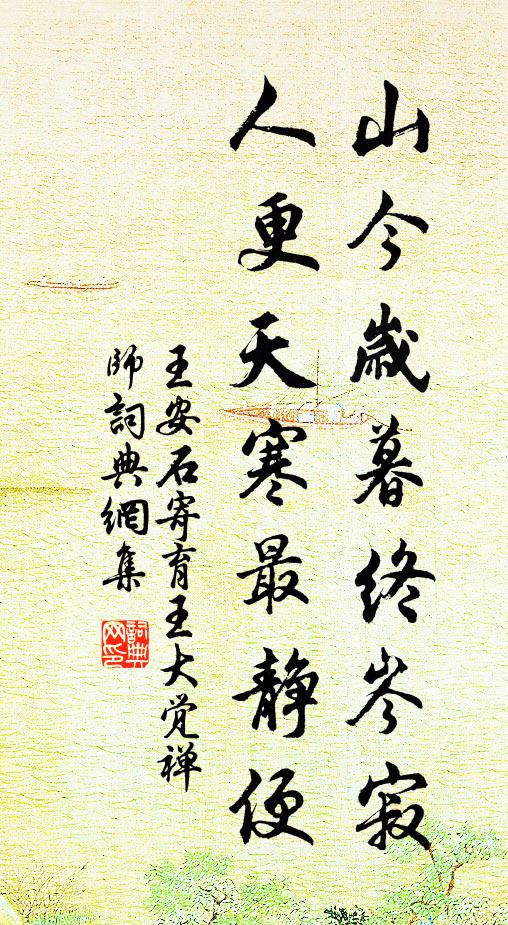 山今歲暮終岑寂
人更天寒最静便
王安石寄育王大觉禅
師詞典網集
詞典
网印